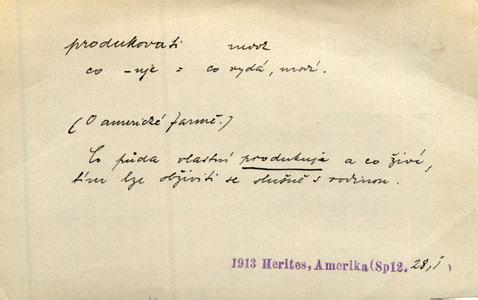 produkovati
co -uje = co vydá, urodí.
(O americké farmě.)
Co půda vlastní produkuje a co živé,
tím lze obživiti se slušně s rodinou.
1913 Herites, Amerika (Sp12. 28,1)